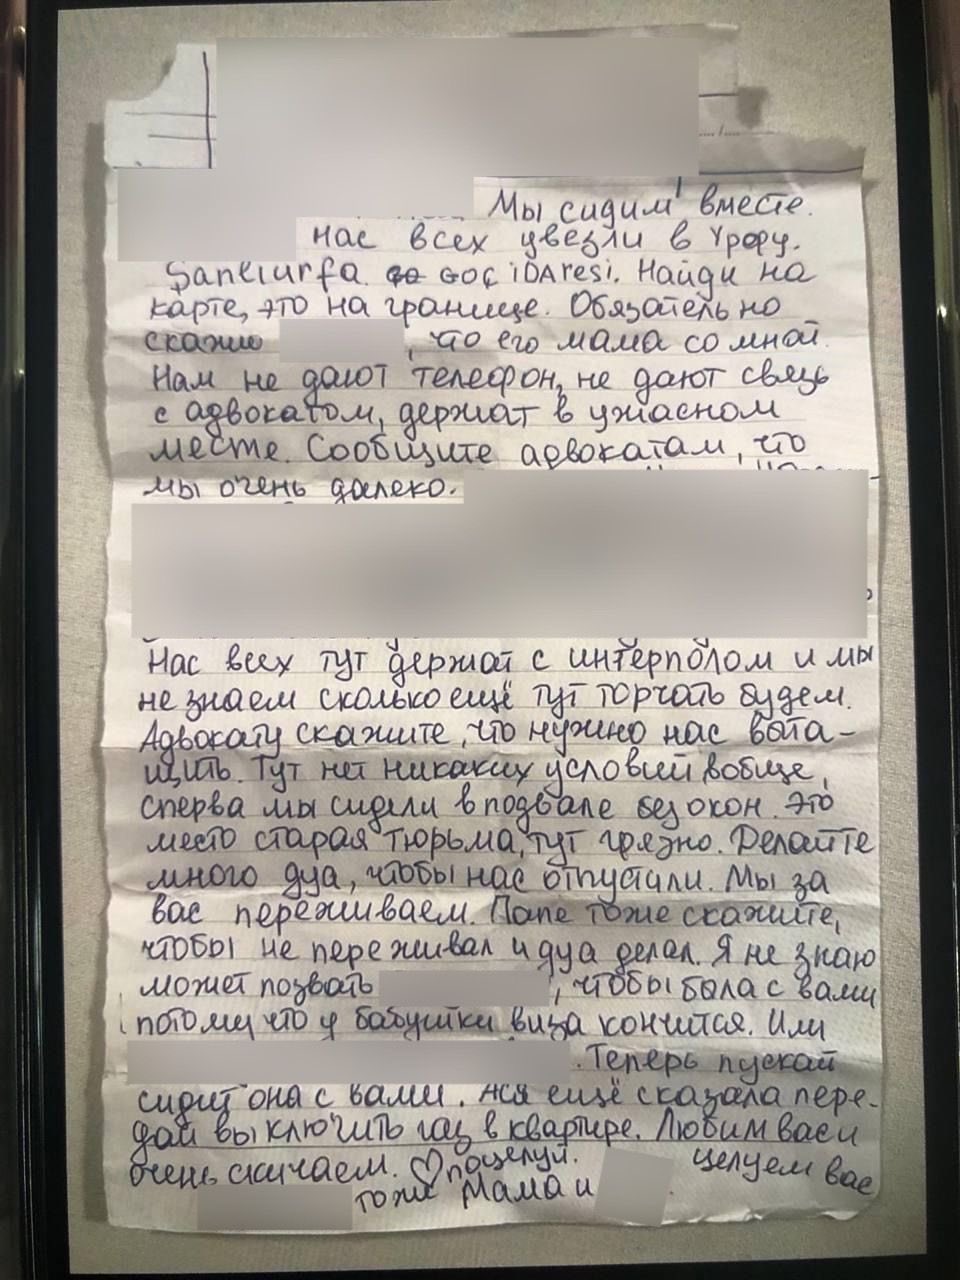 Мы сидим вместе.
нас всех увезли в Урфу.
Şanlıurfa. Goç iDAresi. Найди на
карте, это на границе. Обязательно
скажи , что его мама со мной.
Нам не дают телефон, не дают связь
с адвокатом, держат в ужасном
месте. Сообщите адвокатам, что
мы очень далеко.
Нас всех тут держат с интерполом и мы
не знаем сколько ещё тут торчать будем.
Адвокату скажите, что нужно нас выта-
щить. Тут нет никаких условий вобще,
сперва мы сидели в подвале без окон. Это
место старая тюрьма, тут грязно. Делайте
много дуа, чтобы нас отпустили. Мы за
вас переживаем. Папе тоже скажите,
чтобы не переживал и дуа делал. Я не знаю
может позвать , чтобы была с вами
потому что у бабушки виза кончится. Или
. Теперь пускай
сидит она с вами. Ася ещё сказала пере-
дай выключить газ в квартире. Любим вас и
очень скучаем. ♡ поцелуй. целуем вас
тоже Мама и .